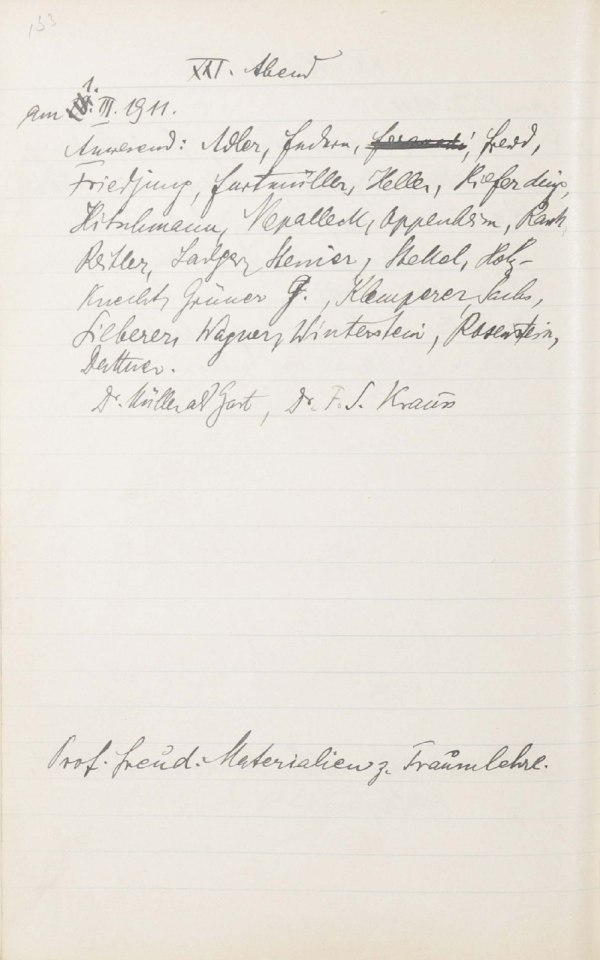 133
XXI. Abend
am 1. III. 1911.
Anwesend: Adler, Federn, Freud,
Friedjung, Furtmüller, Heller, Kieferding,
Hitschmann, Nepalleck, Oppenheim, Rank,
Reitler, Sadger, Steiner, Stekel, Holz-
knecht, Grüner G., Klemperer, Sachs,
Silberer, Wagner, Winterstein, Rosenstein,
Dattner.
Dr. Müller als Gast, Dr. F. S. Krauss
Prof. Freud: Materialien z. Traumlehre.